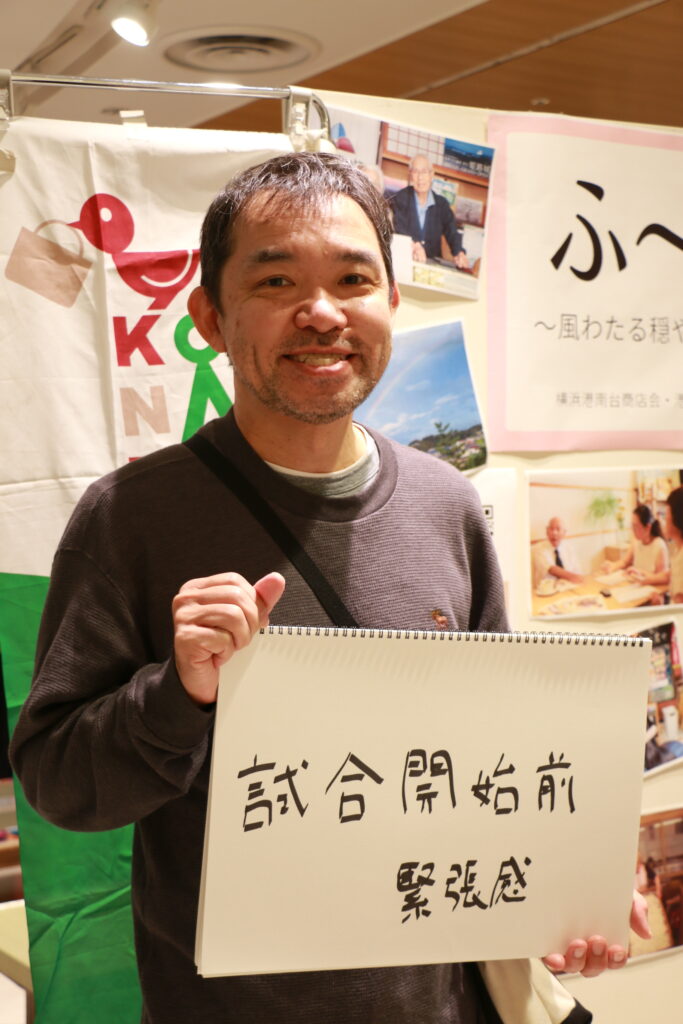 KO
NA
ふ〜
〜風わたる穏や
横浜港南台商店会・港
試合開始前
緊張感